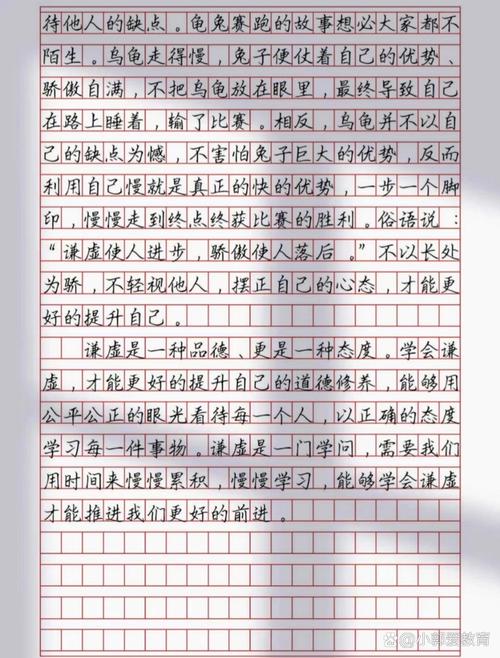 待他人的缺点。龟兔赛跑的故事想必大家都不
陌生。乌龟走得慢，兔子便仗着自己的优势、
骄傲自满，不把乌龟放在眼里，最终导致自己
在路上睡着，输了比赛。相反，乌龟并不以自
己的缺点为憾，不害怕兔子巨大的优势，反而
利用自己慢就是真正的快的优势，一步一个脚
印，慢慢走到终点终获比赛的胜利。俗语说：
“谦虚使人进步，骄傲使人落后。”不以长处
为骄，不轻视他人，摆正自己的心态，才能更
好的提升自己。
谦虚是一种品德、更是一种态度。学会谦
虚，才能更好的提升自己的道德修养，能够用
公平公正的眼光看待每一个人，以正确的态度
学习每一件事物。谦虚是一门学问，需要我们
用时间来慢慢累积，慢慢学习，能够学会谦虚
才能推进我们更好的前进。
小郭爱教育